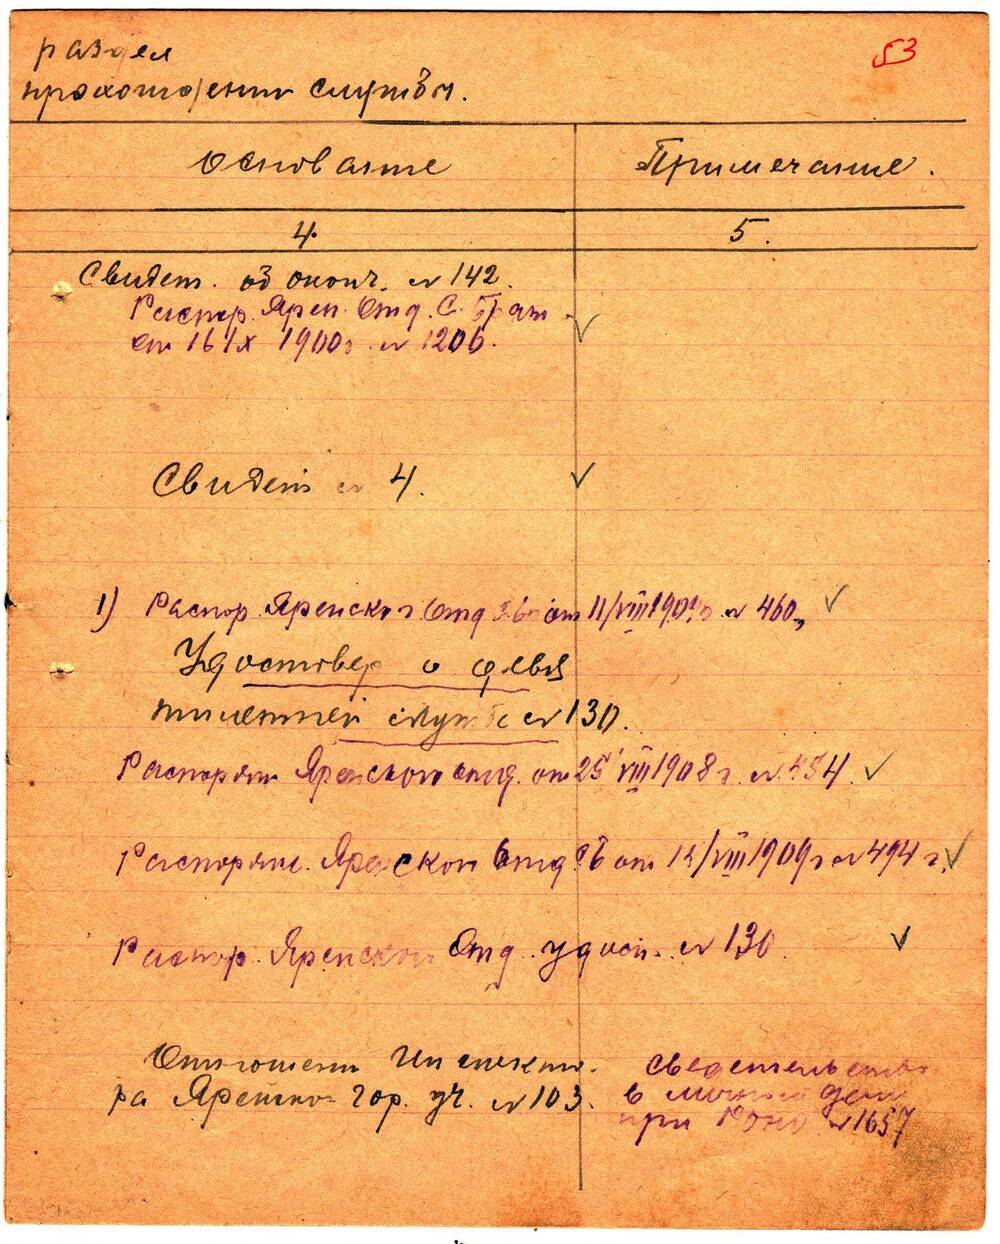 раздел
прохождения службы.
53
Основание
Примечание.
4.
5.
Свидет. об оконч. № 142.
Распор. Ярен. Отд. С. Брат.
от 16/IX 1900г. № 1206.
Свидет № 4.
1) Распор. Яренског Отд. от 11/VIII 190 г. № 460,
Удостовер о
службе № 130.
Распоряж Яренского отд. от 25 VIII 1908 г. №
Распоряж. Яренского Отд. от /VIII 1909 г № 494 г.
Распор. Яренского Отд. удост. № 130
Отношение Инспекто-
ра Яренско Гор. уч. № 103.
Сведетельство
в личном деле
при Роно № 1657